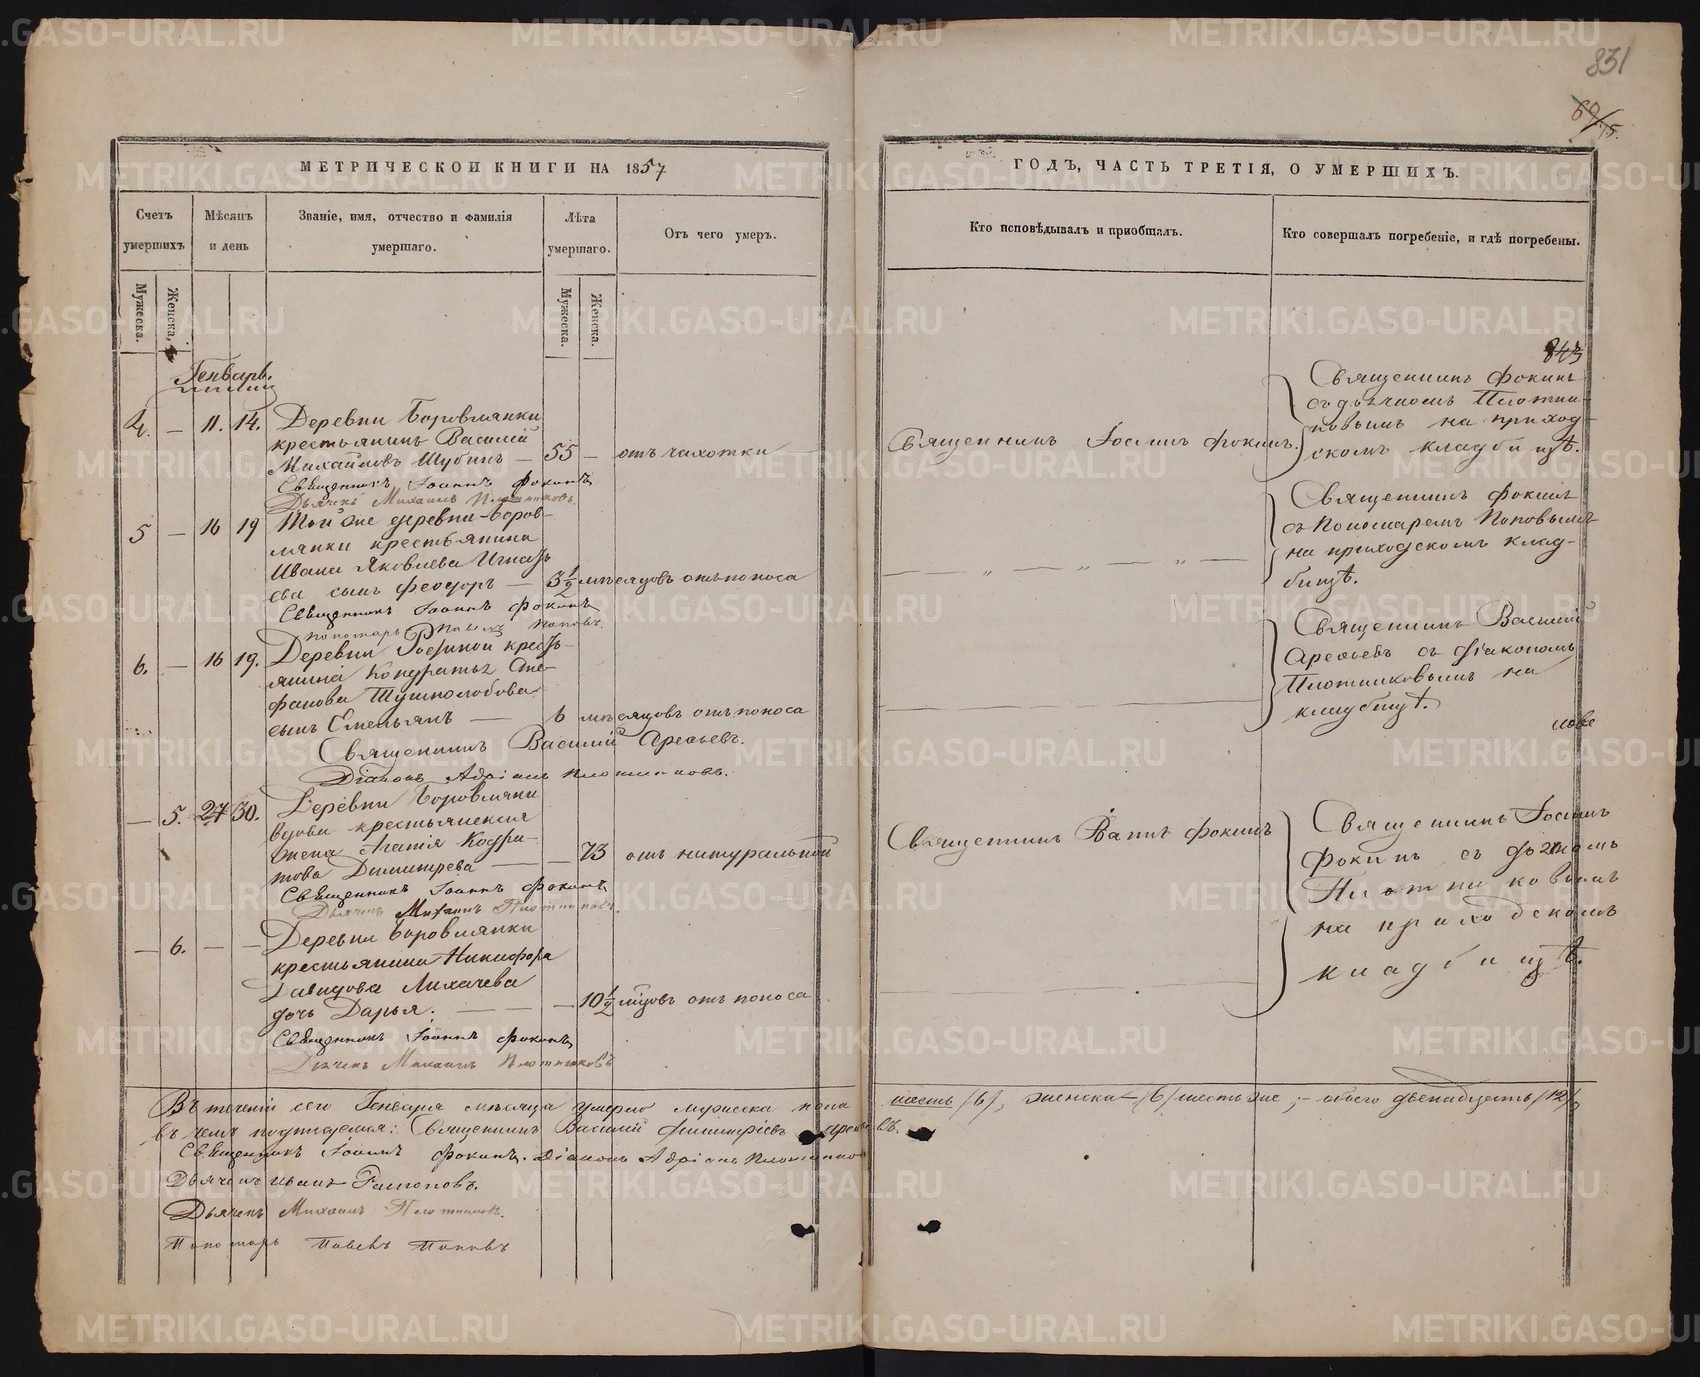 831
69/75.
МЕТРИЧЕСКОЙ КНИГИ НА 1857
ГОДЪ, ЧАСТЬ ТРЕТІЯ, О УМЕРШИХЪ.
Счетъ умершихъ
Мѣсяцъ и день
Званіе, имя, отчество и фамилія умершаго.
Лѣта умершаго.
Отъ чего умеръ.
Кто исповѣдывалъ и пріобщалъ.
Кто совершалъ погребеніе, и гдѣ погребены.
Мужеска.
Женска.
Мужеска.
Женска.
Генварь.
843
4. — 11. 14. Деревни Боровлянки
крестьянинъ Василій
Михайловъ Шубинъ — 55 — отъ чахотки
Священникъ Іоаннъ Фокинъ
Дьячекъ Михаилъ Плотниковъ.
Священникъ Іоаннъ Фокинъ.
Священникъ Фокинъ
съ дьячкомъ Плотни-
ковымъ на приход-
скомъ кладбищѣ.
5 — 16 19 Той же деревни Боров-
лянки крестьянина
Ивана Яковлева Игнать
ева сынъ Феодоръ — 3 1/2 мѣсяцовъ отъ поноса
Священникъ Іоаннъ Фокинъ
Пономарь Павелъ Поповъ.
— „ — „ — „ —
Священникъ Фокинъ
съ Пономаремъ Поповымъ
на приходскомъ клад-
бищѣ.
6. — 16 19. Деревни крестъ-
янина Кондратья Сте-
фанова Шушполобова
сынъ Емельянъ — 6 мѣсяцовъ отъ поноса
Священникъ Василій Арефьевъ.
Діаконъ Адріанъ Плотниковъ.
Священникъ Василій
Арефьевъ съ діакономъ
Плотниковымъ на
кладбищѣ.
— 5. 27 30. Деревни Боровлянки
вдова крестьянская
жена Агапія Кодра-
това Димитрева — 73 отъ натуральной
Священникъ Іоаннъ Фокинъ
Дьячекъ Михаилъ Плотниковъ.
Священникъ Іоаннъ Фокинъ
Священникъ Іоаннъ
Фокинъ съ дьячкомъ
Плотниковымъ
на приходскомъ
кладбищѣ.
— 6. — — Деревни Боровлянки
крестьянина Никифора
Давидова Лихачева
дочь Дарья. — — 10 1/2 мцовъ отъ поноса
Священникъ Іоаннъ Фокинъ
Дьячекъ Михаилъ Плотниковъ
Въ теченіи сего Генваря мѣсяца умерло мужеска пола шесть /6/, женска — /6/ шесть же; — обоего двенадцать /12/,
въ чемъ подписуемся: Священникъ Василій Димитріевъ Арефьевъ.
Священникъ Іоаннъ Фокинъ. Діаконъ Адріанъ Плотниковъ
Дьячекъ
Дьячекъ Михаилъ Плотниковъ.
Пономарь Павелъ Поповъ
METRIKI.GASO-URAL.RU